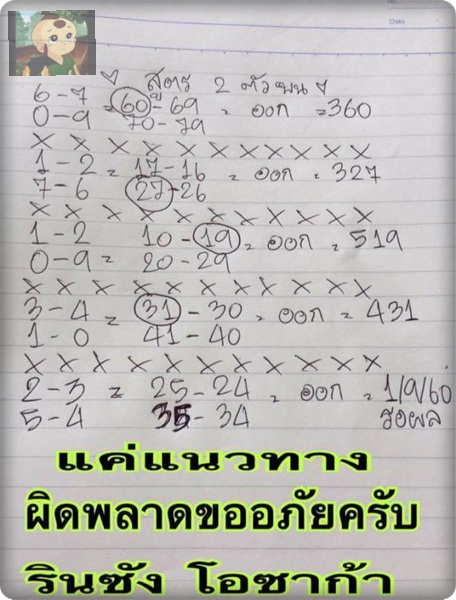 ♡ สูตร 2 ตัวบน ๆ
6-7 = 60-69 = ออก = 360
0-9 70-79
X X X X X X X X X X X X
1-2 = 17-16 = ออก = 327
7-6 27-26
X X X X X X X X X X X
1-2 10-19 = ออก = 519
0-9 = 20-29
X X X X X X X X X X X
3-4 = 31-30 = ออก = 431
1-0 41-40
X X X X X X X X X X X
2-3 = 25-24 = ออก = 1/9/60
5-4 35-34 รอผล
แค่แนวทาง
ผิดพลาดขออภัยครับ
รินซัง โอซาก้า